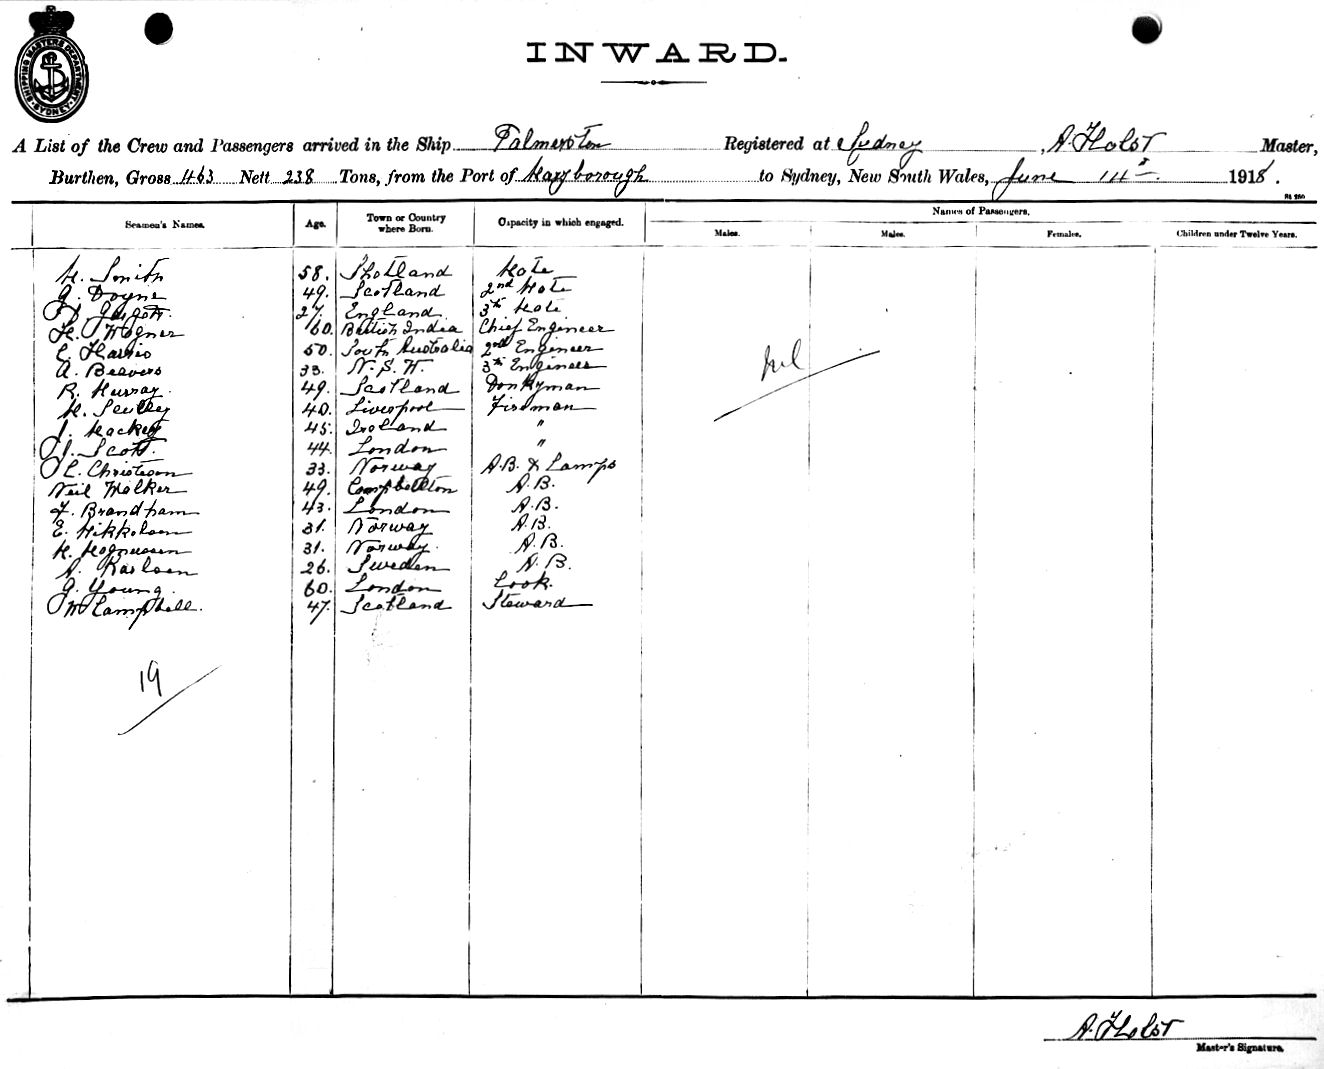 SHIPPING MASTERS DEPARTMENT SYDNEY
INWARD.
A List of the Crew and Passengers arrived in the Ship Palmerston Registered at Sydney, A. Holst Master,
Burthen, Gross 463 Nett 238 Tons, from the Port of Maryborough to Sydney, New South Wales, June 1918.
Names of Passengers.
Seamen's Names. Age. Town or Country where Born. Capacity in which engaged. Males. Males. Females. Children under Twelve Years.
M. Smith 58. Shotland Mate
G. Doyne 49. Scotland 2nd Mate
27. England 3th Mate
H. Wagner 60. British India Chief Engineer
E. Harris 50. South Australia 2nd Engineer
A. Beavers 33. N. S. W. 3th Engineer
R. Murray 49. Scotland Donkyman
M. Scully 40. Liverpool Fireman
J. Mackey 45. Ireland "
J. Scott. 44. London "
C. Christison 33. Norway A.B. & Lamps
Neil Walker 49. Campbellton A.B.
F. Brandham 43. London A.B.
E. Mikkelsen 31. Norway A.B.
M. Magnussen 31. Norway. A.B.
A. Karlsen 26. Sweden A.B.
G. Young. 60. London Cook.
W Campbell. 47. Scotland Steward
nil
19
A. Holst
Master's Signature.